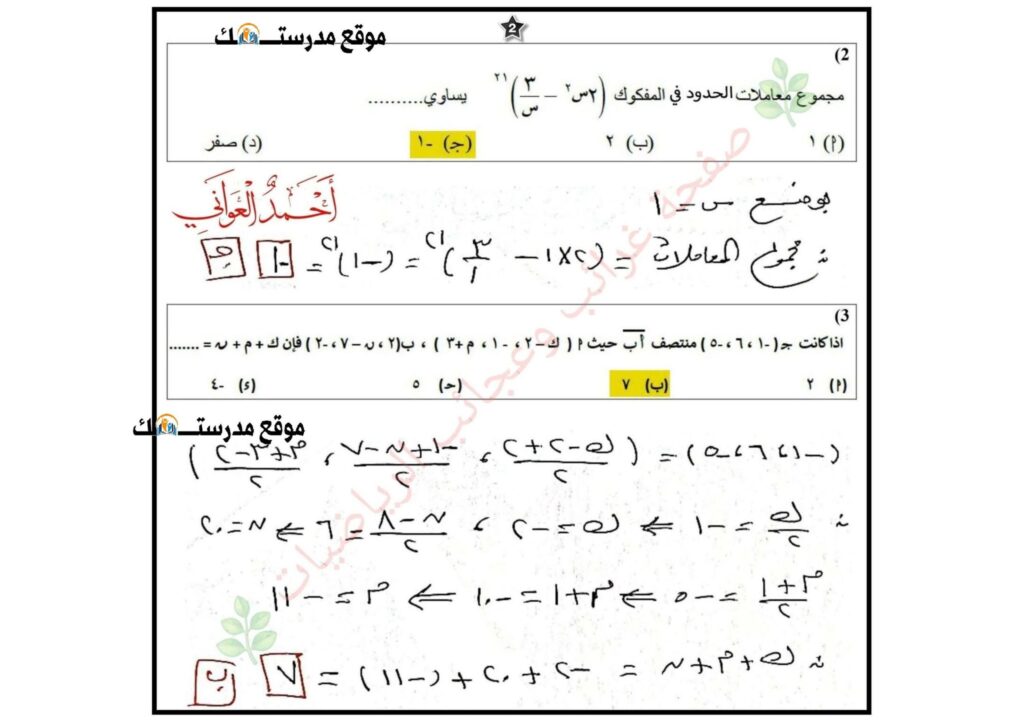 موقع مدرستـــك
2
2)
مجموع معاملات الحدود في المفكوك (٢س٢ − ٣/س)٢١ يساوي..........
(أ) ١ (ب) ٢ (ج) -١ (د) صفر
أحمد العواني
بوضع س = ١
∴ مجموع المعاملات = (٢×١ − ٣/١)٢١ = (−١)٢١ = −١ ج
3)
اذا كانت جـ(-١، ٦، -٥) منتصف أب حيث أ (ك-٢، -١، م+٣)، ب(٢، ن-٧، -٢) فإن ك + م + ن = .......
(أ) ٢ (ب) ٧ (حـ) ٥ (ء) -٤
موقع مدرستـــك
(−١، ٦، −٥) = (ك−٢+٢/٢، −١+ن−٧/٢، م+٣−٢/٢)
∴ ك/٢ = −١ ⇐ ك = −٢، ن−٨/٢ = ٦ ⇐ ن = ٢٠
م+١/٢ = −٥ ⇐ م+١ = −١٠ ⇐ م = −١١
∴ ك+م+ن = −٢+٢٠+(−١١) = ٧ ب
صفحة غرائب وعجائب الرياضيات